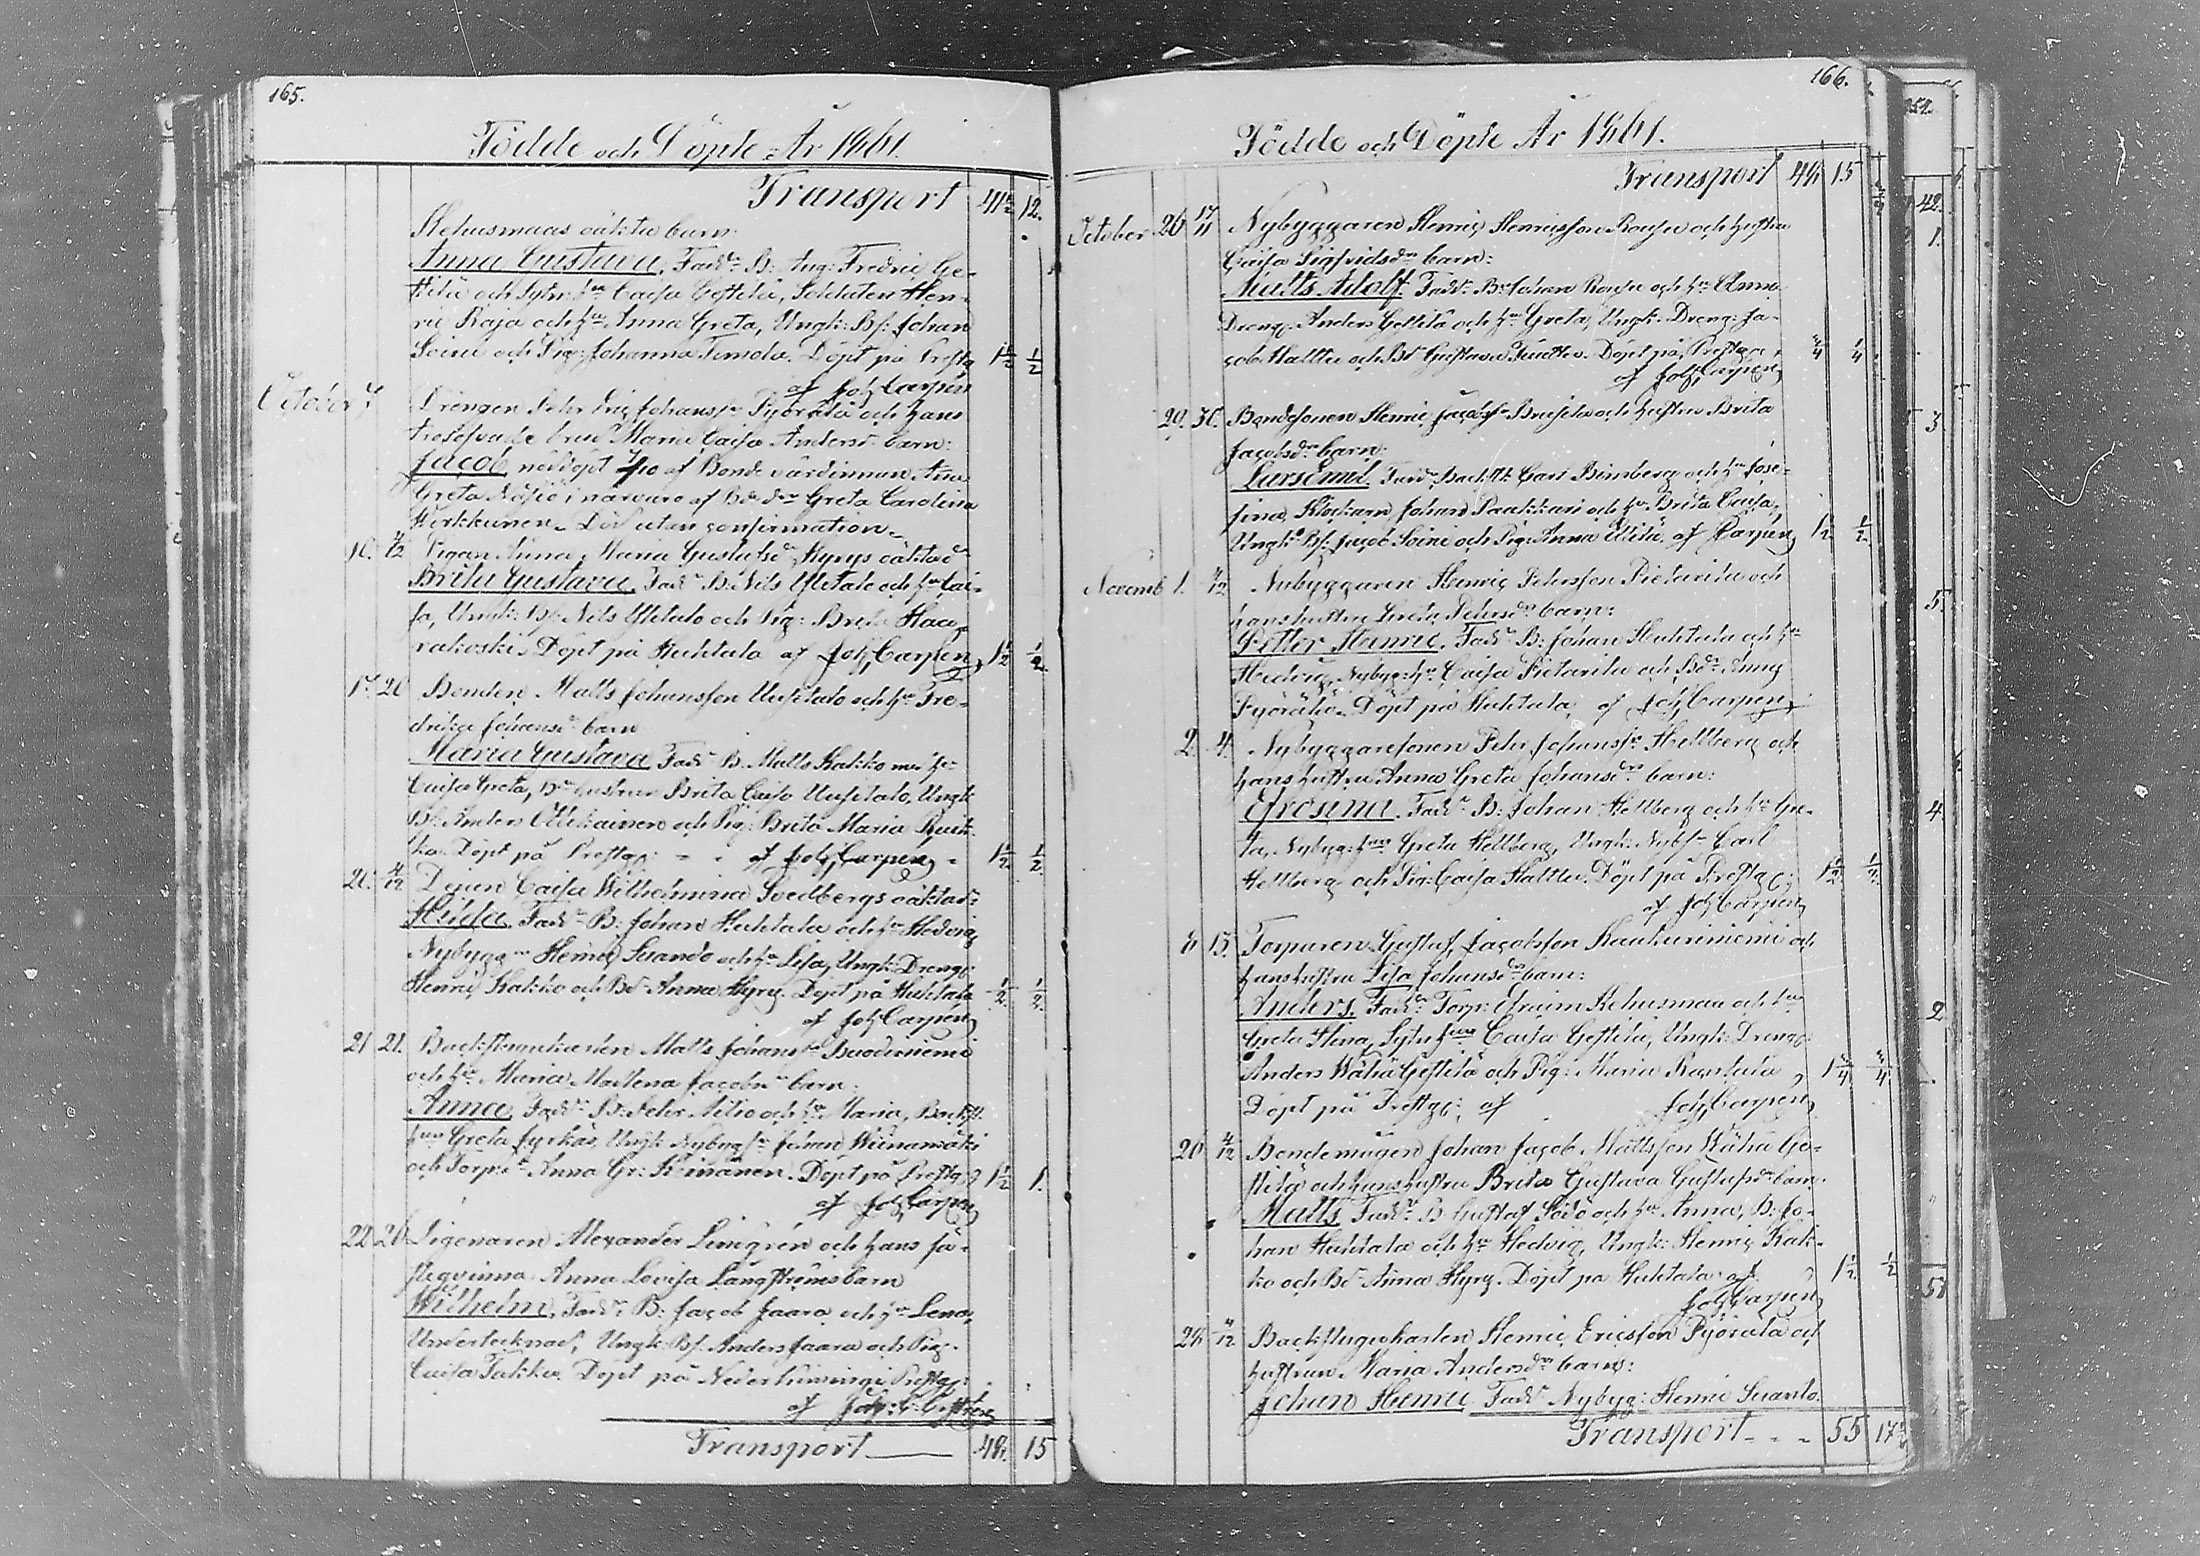 165.
Födde och Döpte År 1861.
Transport 41½ 12.
oäkta barn
Anna Gustava, Fadd: B: Aug: Fredric Ge-
stilä och hu Caisa Gestilä, Soldaten Hen-
ric Raja och hu Anna Greta, Ungk: Bs: Johan
Soini och Pig: Johanna Timola. Döpt på Prestg 1½ ½
af Joh Carpén
October 7. Drengen Pehr Johanss Pyörälä och hans
trolofvade brud Maria Caisa Andersd barn:
Jacob nöddöpt 7/10 af Bonde värdinnan
Greta i närvaro af Greta Carolina
Kerkkunen. Död utan confirmation.
10. Pigan Anna Maria Gustafsd Hyrys oäkta
Brita Gustava, Fadd: B: Nils Ylitalo och hu Cai-
sa, Ungk: Bs: Nils Ylitalo och Pig: Brita Haa-
rakoski. Döpt på Huhtala af Joh Carpén 1½ ½
17. 20 Bonden Matts Johansson Uusitalo och hu Fre-
drika Johansd barn
Maria Gustava Fadd B. Matts Kakko med hu
Caisa Greta, Brita Caisa Uusitalo, Ungk
Bs: Anders Ollikainen och Pig: Brita Maria
Döpt på Prestg: af Joh Carpén 1½ ½
20. Caisa Wilhelmina Svedbergs oäkta
Hilda Fadd B: Johan Huhtala och hu Hedvig,
Nybygg Henric Suando och hu Lisa, Ungk: Dreng:
Henric Kakko och Bd Anna Hyry. Döpt på Huhtala ½ ½
af Joh Carpén
21 21. Backstugukarlen Matts Johanss
och hu Maria Madlena Jacobsd barn:
Anna, Fadd: B: Pehr och hu Maria, Backst.
Greta Jyrkäs, Ungk Nybygs Johan Wiinamäki
och Torp: Anna Gr: Keinänen. Döpt på Prestg 1½ 1.
af Joh Carpén
22 26 Ligenaren Alexander Lindgrén och hans fä-
steqvinna Anna Lovisa Långströms barn
Wilhelm, Fadd: B: Jacob Jaara och hu Lena,
Undertecknad, Ungk: Bs: Anders Jaara och Pig:
Caisa Takko. Döpt på Nederkiminge Prestg:
af Joh:
Transport 48. 15
166.
Födde och Döpte År 1861.
Transport 48 15
October 26 17/11 Nybyggaren Henric Henricsson Rousu och hustru
Caisa Sigfridsdr barn:
Matts Adolf. Fadd: B: Johan Rousu och hu Anna
Dreng: Anders Gestilä och hu Greta, Ungk: Dreng: Ja-
cob Halttu och Bd Gustava Döpt på Prestg: ¾ ¼
af Joh Carpén
29. 30. Bondesonen Henric Jacobss och hustru Brita
Jacobsdr barn:
Lars Emil Fadd Carl Brinsberg och hu Jose-
fina, Klockarn Johan Paakkari och hu Brita Caisa,
Ungk: Bs: Jacob Soini och Pig: Anna af Carpén 1½ ½
Novemb 1. Nybyggaren Henric Petersson Pietarila och
hans hustru Greta Pehrsdr barn:
Petter Henric, Fadd B: Johan Huhtala och hu
Hedvig, Nybyg: hu Caisa Pietarila och Bd Anna
Pyörälä. Döpt på Huhtala af Joh Carpén
2. 4. Nybyggaresonen Pehr Johanss Hellberg och
hans hustru Anna Greta Johansdr barn:
Efrosina. Fadd: B: Johan Hellberg och hu Gre-
ta, Nybyg: Greta Hellberg, Ungk: Nybs Carl
Hellberg och Pig: Caisa Halttu. Döpt på Prestg: 1½ ½
af Joh Carpén
8 15. Torparen Gustaf Jacobsson Kaukuriniemi och
hans hustru Lisa Johansdr barn:
Anders. Fadd Torp: Efraim Kehusmaa och hu
Greta Stina, Caisa Gestilä, Ungk: Dreng:
Anders Wähä Gestilä och Pig: Maria Rantala 1¾ ¾
Döpt på Prestg: af Joh Carpén
20 Bondemågen Johan Jacob Mattsson Wähä Ge-
stilä och hans hustru Brita Gustava Gustafsdr barn.
Matts Fadd: B Gustaf Södö och hu Anna, B: Jo-
han Huhtala och hu Hedvig, Ungk: Henric Kak-
ko och Bd Anna Hyry. Döpt på Huhtala af 1½ ½
Joh Carpén
28 Backstugukarlen Henric Ericsson Pyörälä och
hustrun Maria Andersdr barn:
Johan Henric Fadd Nybyg: Henric Suanto.
Transport 55 17